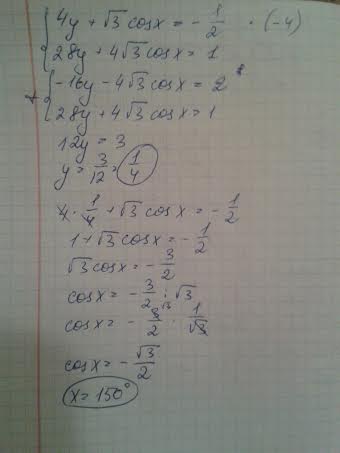 4y + √3 cosx = - 1/2 · (-4)
28y + 4√3 cosx = 1
+ -16y - 4√3 cosx = 2
28y + 4√3 cosx = 1
12y = 3
y = 3/12 = 1/4
4 · 1/4 + √3 cosx = - 1/2
1 + √3 cosx = - 1/2
√3 cosx = - 3/2
cosx = - 3/2 : √3
cosx = - 3/2 · 1/√3
cosx = - √3/2
x = 150°